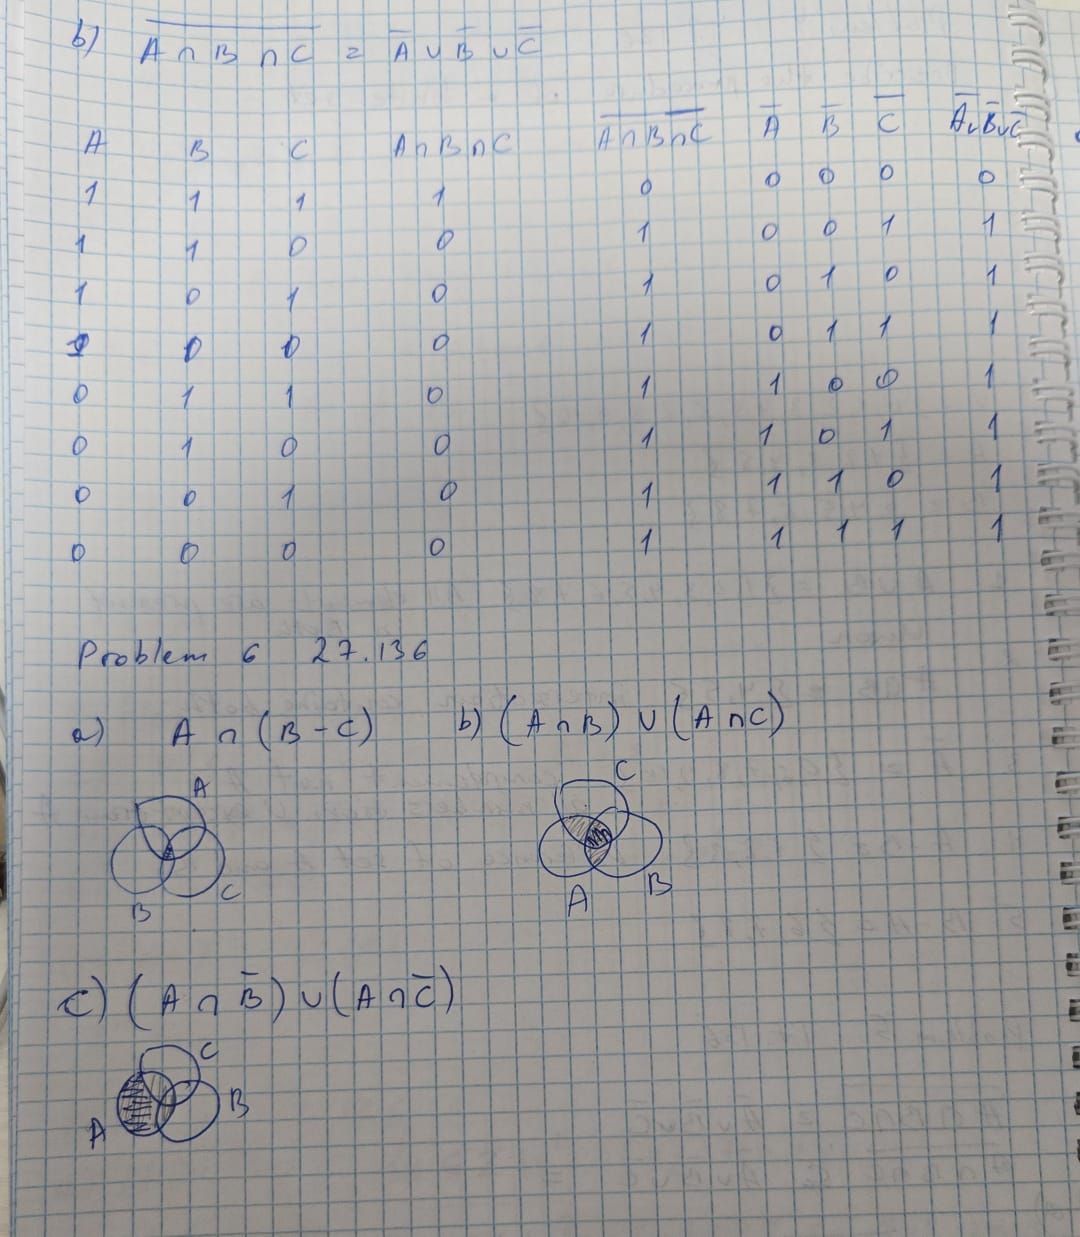 b) \overline{A ∩ B ∩ C} = A̅ ∪ B̅ ∪ C̅
A B C A∩B∩C \overline{A∩B∩C} A̅ B̅ C̅ A̅∪B̅∪C̅
1 1 1 1 0 0 0 0 0
1 1 0 0 1 0 0 1 1
1 0 1 0 1 0 1 0 1
1 0 0 0 1 0 1 1 1
0 1 1 0 1 1 0 0 1
0 1 0 0 1 1 0 1 1
0 0 1 0 1 1 1 0 1
0 0 0 0 1 1 1 1 1
Problem 6 27.136
a) A ∩ (B - C) b) (A ∩ B) ∪ (A ∩ C)
A
B
C
C
A
B
c) (A ∩ B̅) ∪ (A ∩ C̅)
C
B
A